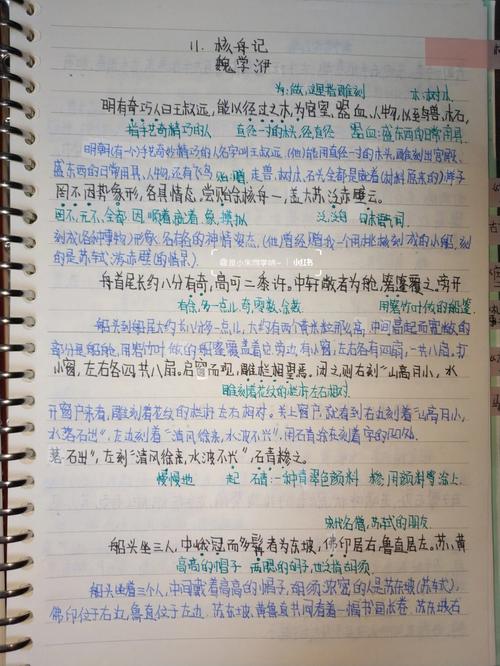 11. 核舟记
魏学洢
为:做,这里指雕刻 木:树木
明有奇巧人曰王叔远,能以径寸之木为宫室、器皿、人物,以至鸟兽、木石,
指手艺奇精巧的人 直径一寸的木头,径,直径 器皿:盛东西的日常用具
明朝(有一个)手艺奇妙精巧的人名字叫王叔远,(他)能用直径一寸的木头,雕刻出宫殿、
盛东西的日常用具、人物,还有飞鸟、走兽、树木、石头,全都是就着(材料原来的)样子
罔不因势象形,各具情态。尝贻余核舟一,盖大苏泛赤壁云。
罔不,无不,全都 因,顺着,就着 象,模拟 泛,泛舟
刻成(各种事物)形象,各有各的神情姿态。(他)曾经赠我一个用桃核刻成的小船,刻
的是苏轼泛赤壁(的情景)。
是小朱同学呐~ 小红书
舟首尾长约八分有奇,高可二黍许。中轩敞者为舱,箬篷覆之。旁开
有余,多一点儿,奇,零数,余数 用箬竹叶做的船篷
船头到船尾大约长八分多一点儿,大约有两个黄米粒那么高,中间高起而宽敞的
部分是船舱,用箬竹叶做的船篷覆盖着它,旁边有小窗,左右各有四扇,一共八扇。打
小窗,左右各四,共八扇。启窗而观,雕栏相望焉。闭之,则右刻“山高月小,水
雕刻着花纹的栏杆左右相对
开窗户来看,雕刻着花纹的栏杆左右相对。关上窗户,就看到右边刻着“山高月小,
水落石出”,左边刻着“清风徐来,水波不兴”,用石青涂在刻着字的凹处。
落石出”,左刻“清风徐来,水波不兴”,石青糁之。
慢慢地 起 石青:一种青翠色颜料 糁:用颜料等涂上
宋代名僧,苏轼的朋友
船头坐三人,中峨冠而多髯者为东坡,佛印居右,鲁直居左。苏、黄
高高的帽子 两腮的胡子,也泛指胡须
船头坐着三个人,中间戴着高高的帽子,胡须浓密的人是苏东坡(苏轼),
佛印位于右边,鲁直位于左边。苏东坡、黄鲁直共同看着一幅书画长卷。苏东坡右